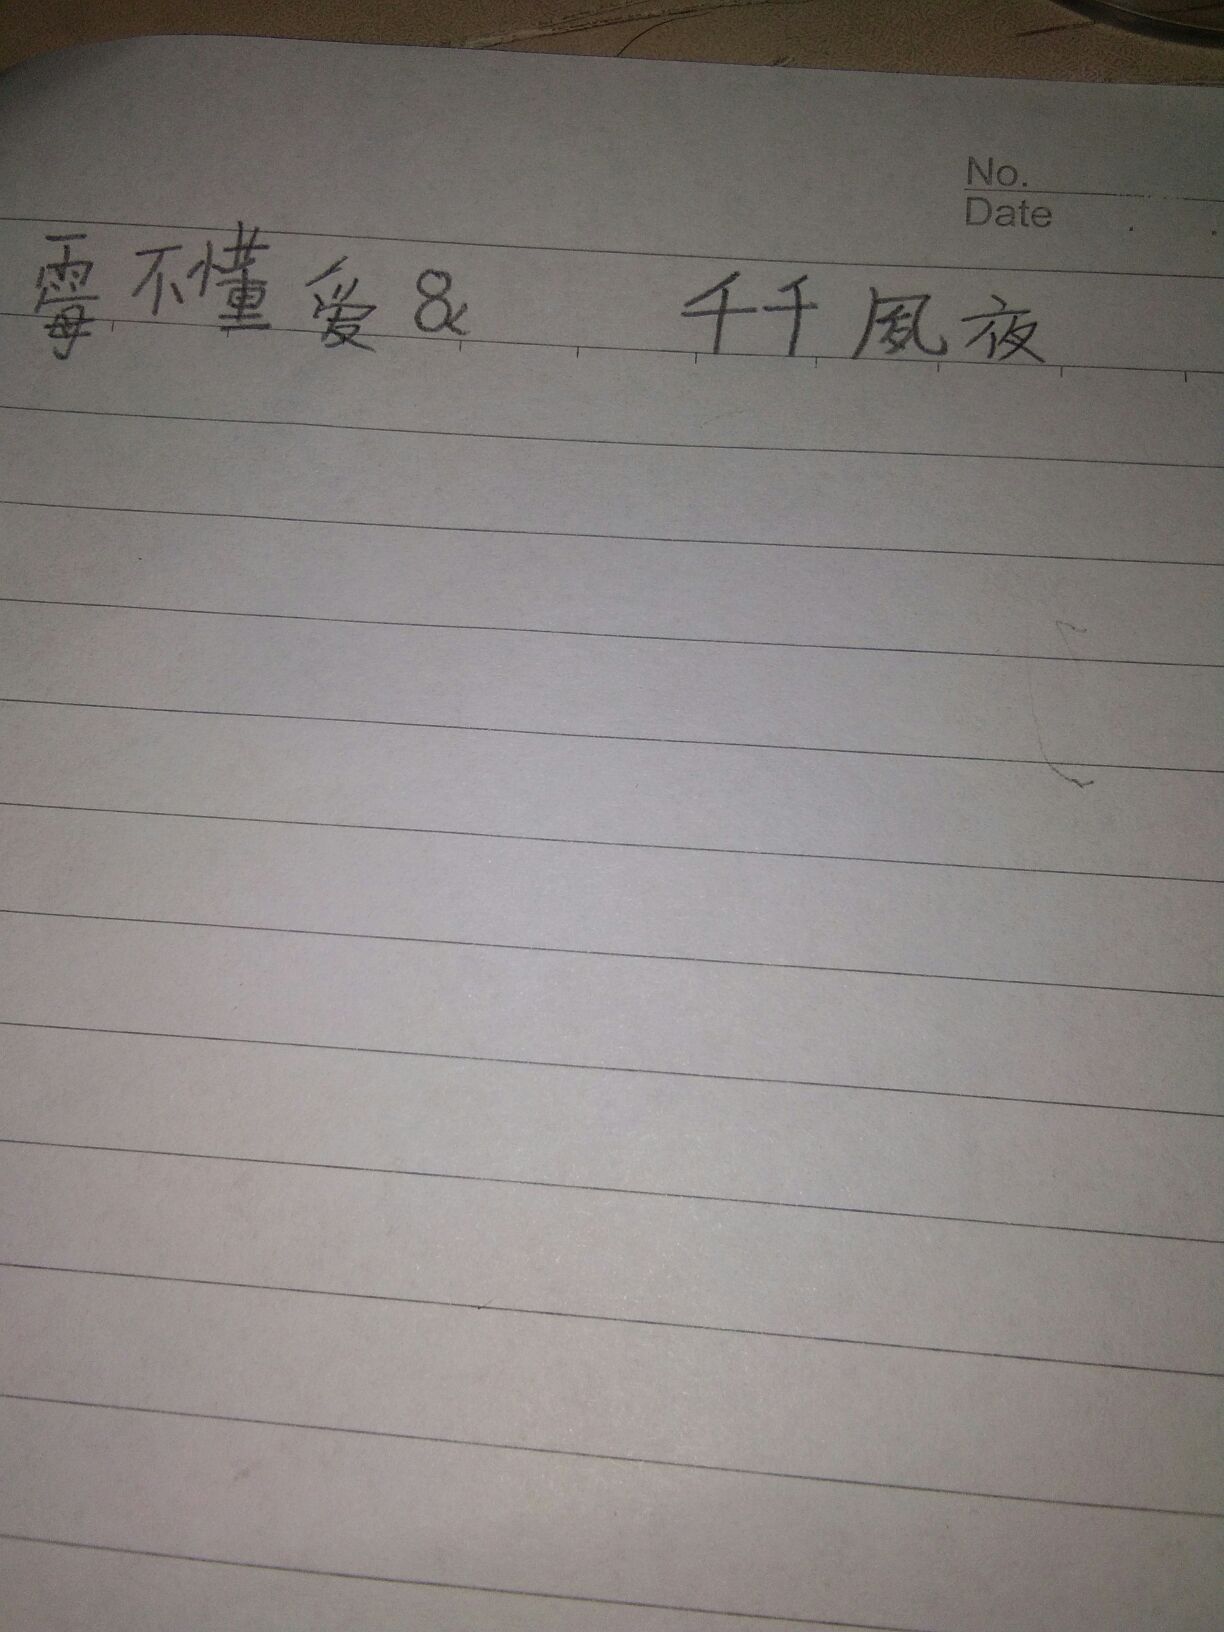 No.
Date . .
霉不懂爱& 千千風夜